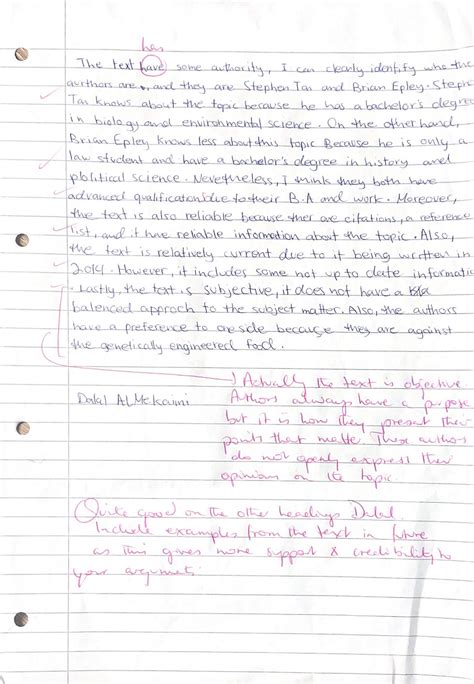 has
The text have some authority, I can clearly identify who the
authors are, and they are Stephen Tan and Brian Epley. Steph
Tan knows about the topic because he has a bachelor's degree
in biology and environmental science. On the other hand,
Brian Epley knows less about this topic Because he is only a
law student and have a bachelor's degree in history and
political science. Nevetheless, I think they both have
advanced qualification due to their B.A and work. Moreover,
the text is also reliable because ther are citations, a reference
list, and it have reliable information about the topic. Also,
the text is relatively current due to it being written in
2014. However, it includes some not up to date informatic
Lastly, the text is subjective, it does not have a
balenced approch to the subject matter. Also, the authors
have a preference to one side because they are against
the genetically engineered food.
Actually the text is objective
Dalal AlMekaimi Authors always have a purpose
but it is how they present their
points that matte. These authors
do not openly express their
opinion on the topic.
Quite good on the other headings Dalal.
Include examples from the text in future
as this gives more support & credibility to
your argument.